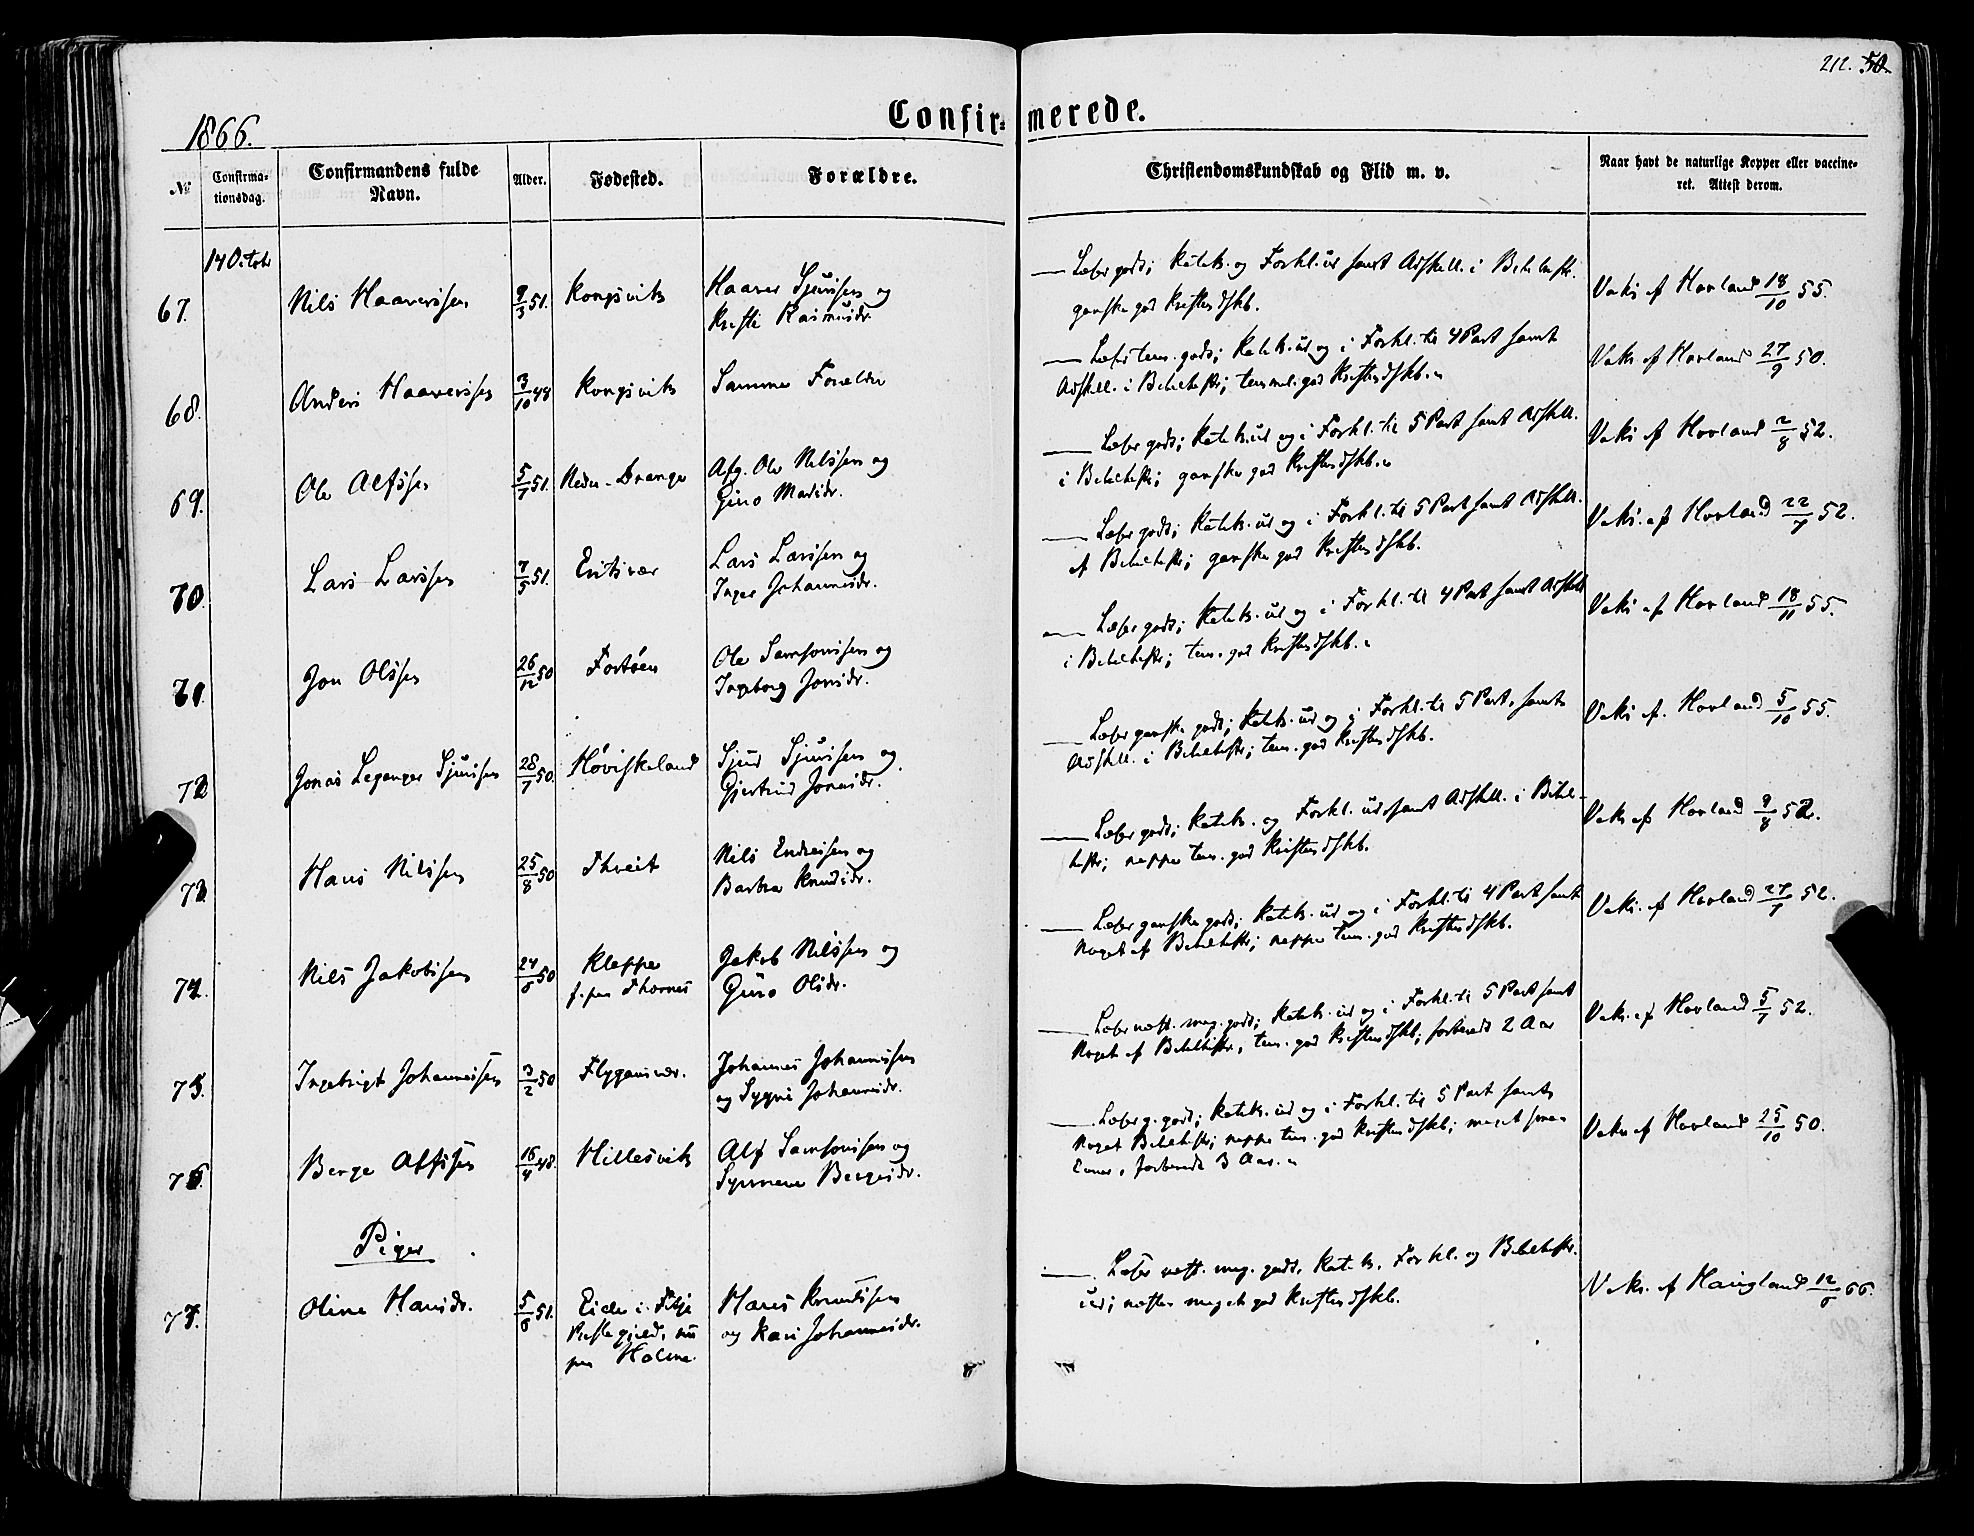 212. 50
1866.
Confirmerede.
№
Confirma-
tionsdag.
Confirmandens fulde
Navn.
Alder.
Fødested.
Forældre.
Christendomskundskab og Flid m. v.
Naar havt de naturlige Kopper eller vaccine-
ret. Attest derom.
14 Octobr
67. Nils Haaverssen 9/3 51. Kongsvik Haaver Sjurssen og
Kristi Rasmusdr.
Læser godt; Katek. og Forkl. ud samt Adskill. i Bibelhistr.
ganske god Kristendskb.
Vaks af Hovland 18/10 55.
68. Anders Haaverssen 3/10 48 Kongsvik Samme Forældre
Læser tem. godt; Katek. ud og i Forkl. til 4 Part samt
Adskill. i Bibelhistr; temmel. god Kristendskb.
Vaks af Hovland 27/9 50.
69. Ole Alfssen 5/7 51. Nedre-Drange Afg. Ole Nilssen og
Guro Madsdr.
Læser godt; Katek. ud og i Forkl. til 5 Part samt Adskill.
i Bibelhistr; ganske god Kristendskb.
Vaks af Hovland 2/8 52.
70. Lars Larssen 7/5 51. Entsvær Lars Larssen og
Inger Johannesdr.
Læser godt; Katek. ud og i Forkl. til 5 Part samt Adskill.
af Bibelhistr; ganske god Kristendskb.
Vaks. af Hovland 22/7 52.
71. Jon Olssen 26/12 50 Fortøen Ole Samsonssen og
Ingeborg Jonsdr.
Læser godt; Katek. ud og i Forkl. til 4 Part samt Adskill
i Bibelhistr; tem. god Kristendskb.
Vaks af Hovland 18/11 55.
72 Jonas Leganger Sjurssen 28/7 50. Høviskeland Sjur Sjurssen og
Gjertrud Jonasdr.
Læser ganske godt; Katek. ud og i Forkl. til 5 Part, samt
Adskill. i Bibelhistr; tem. god Kristendskb.
Vaks af. Hovland 5/10 55.
73. Hans Nilssen 25/8 50 Thveit Nils Endresssen og
Barbra Knudsdr.
Læser godt; Katek. og Forkl. ud samt Adskill. i Bibel-
histr; neppe tem. god Kristendskb.
Vaks af Hovland 9/8 52.
74. Nils Jakobssen 24/6 50 Kleppe
f. paa Thornes
Jakob Nilssen og
Guro Olsdr.
Læser ganske godt; Katek. ud og i Forkl. til 4 Part samt
Noget af Bibelhistr; neppe tem. god Kristendskb.
Vaks. af Hovland 27/7 52.
75. Ingebrigt Johannessen 3/2 50 Flygansvær. Johannes Johannessen
og Sygni Johannesdr.
Læser næst. meg. godt; Katek. ud og i Forkl. til 5 Part samt
Noget af Bibelhistr, tem. god Kristendskb; forberedt 2 Aar
Vaks. af Hovland 5/7 52.
76. Berge Alfssen 16/4 48. Hillesvik Alf Samsonssen og
Synneve Bergesdr.
Læser g. godt; Katek. ud og i Forkl. til 5 Part samt
Noget Bibelhistr; neppe tem. god Kristendskb; meget smaa
Evner, forberedt 3 Aar.
Vaks af Hovland 25/10 50.
Piger
77. Oline Hansdr. 5/6 51. Eide i Fitje
Præstegjeld, nu
paa Holme.
Hans Knudssen
og Kari Johannesdr.
Læser næst. meg. godt, Katek, Forkl. og Bibelhistr.
ud; næsten meget god Kristendskb.
Vaks. af Haugland 12/6 66.